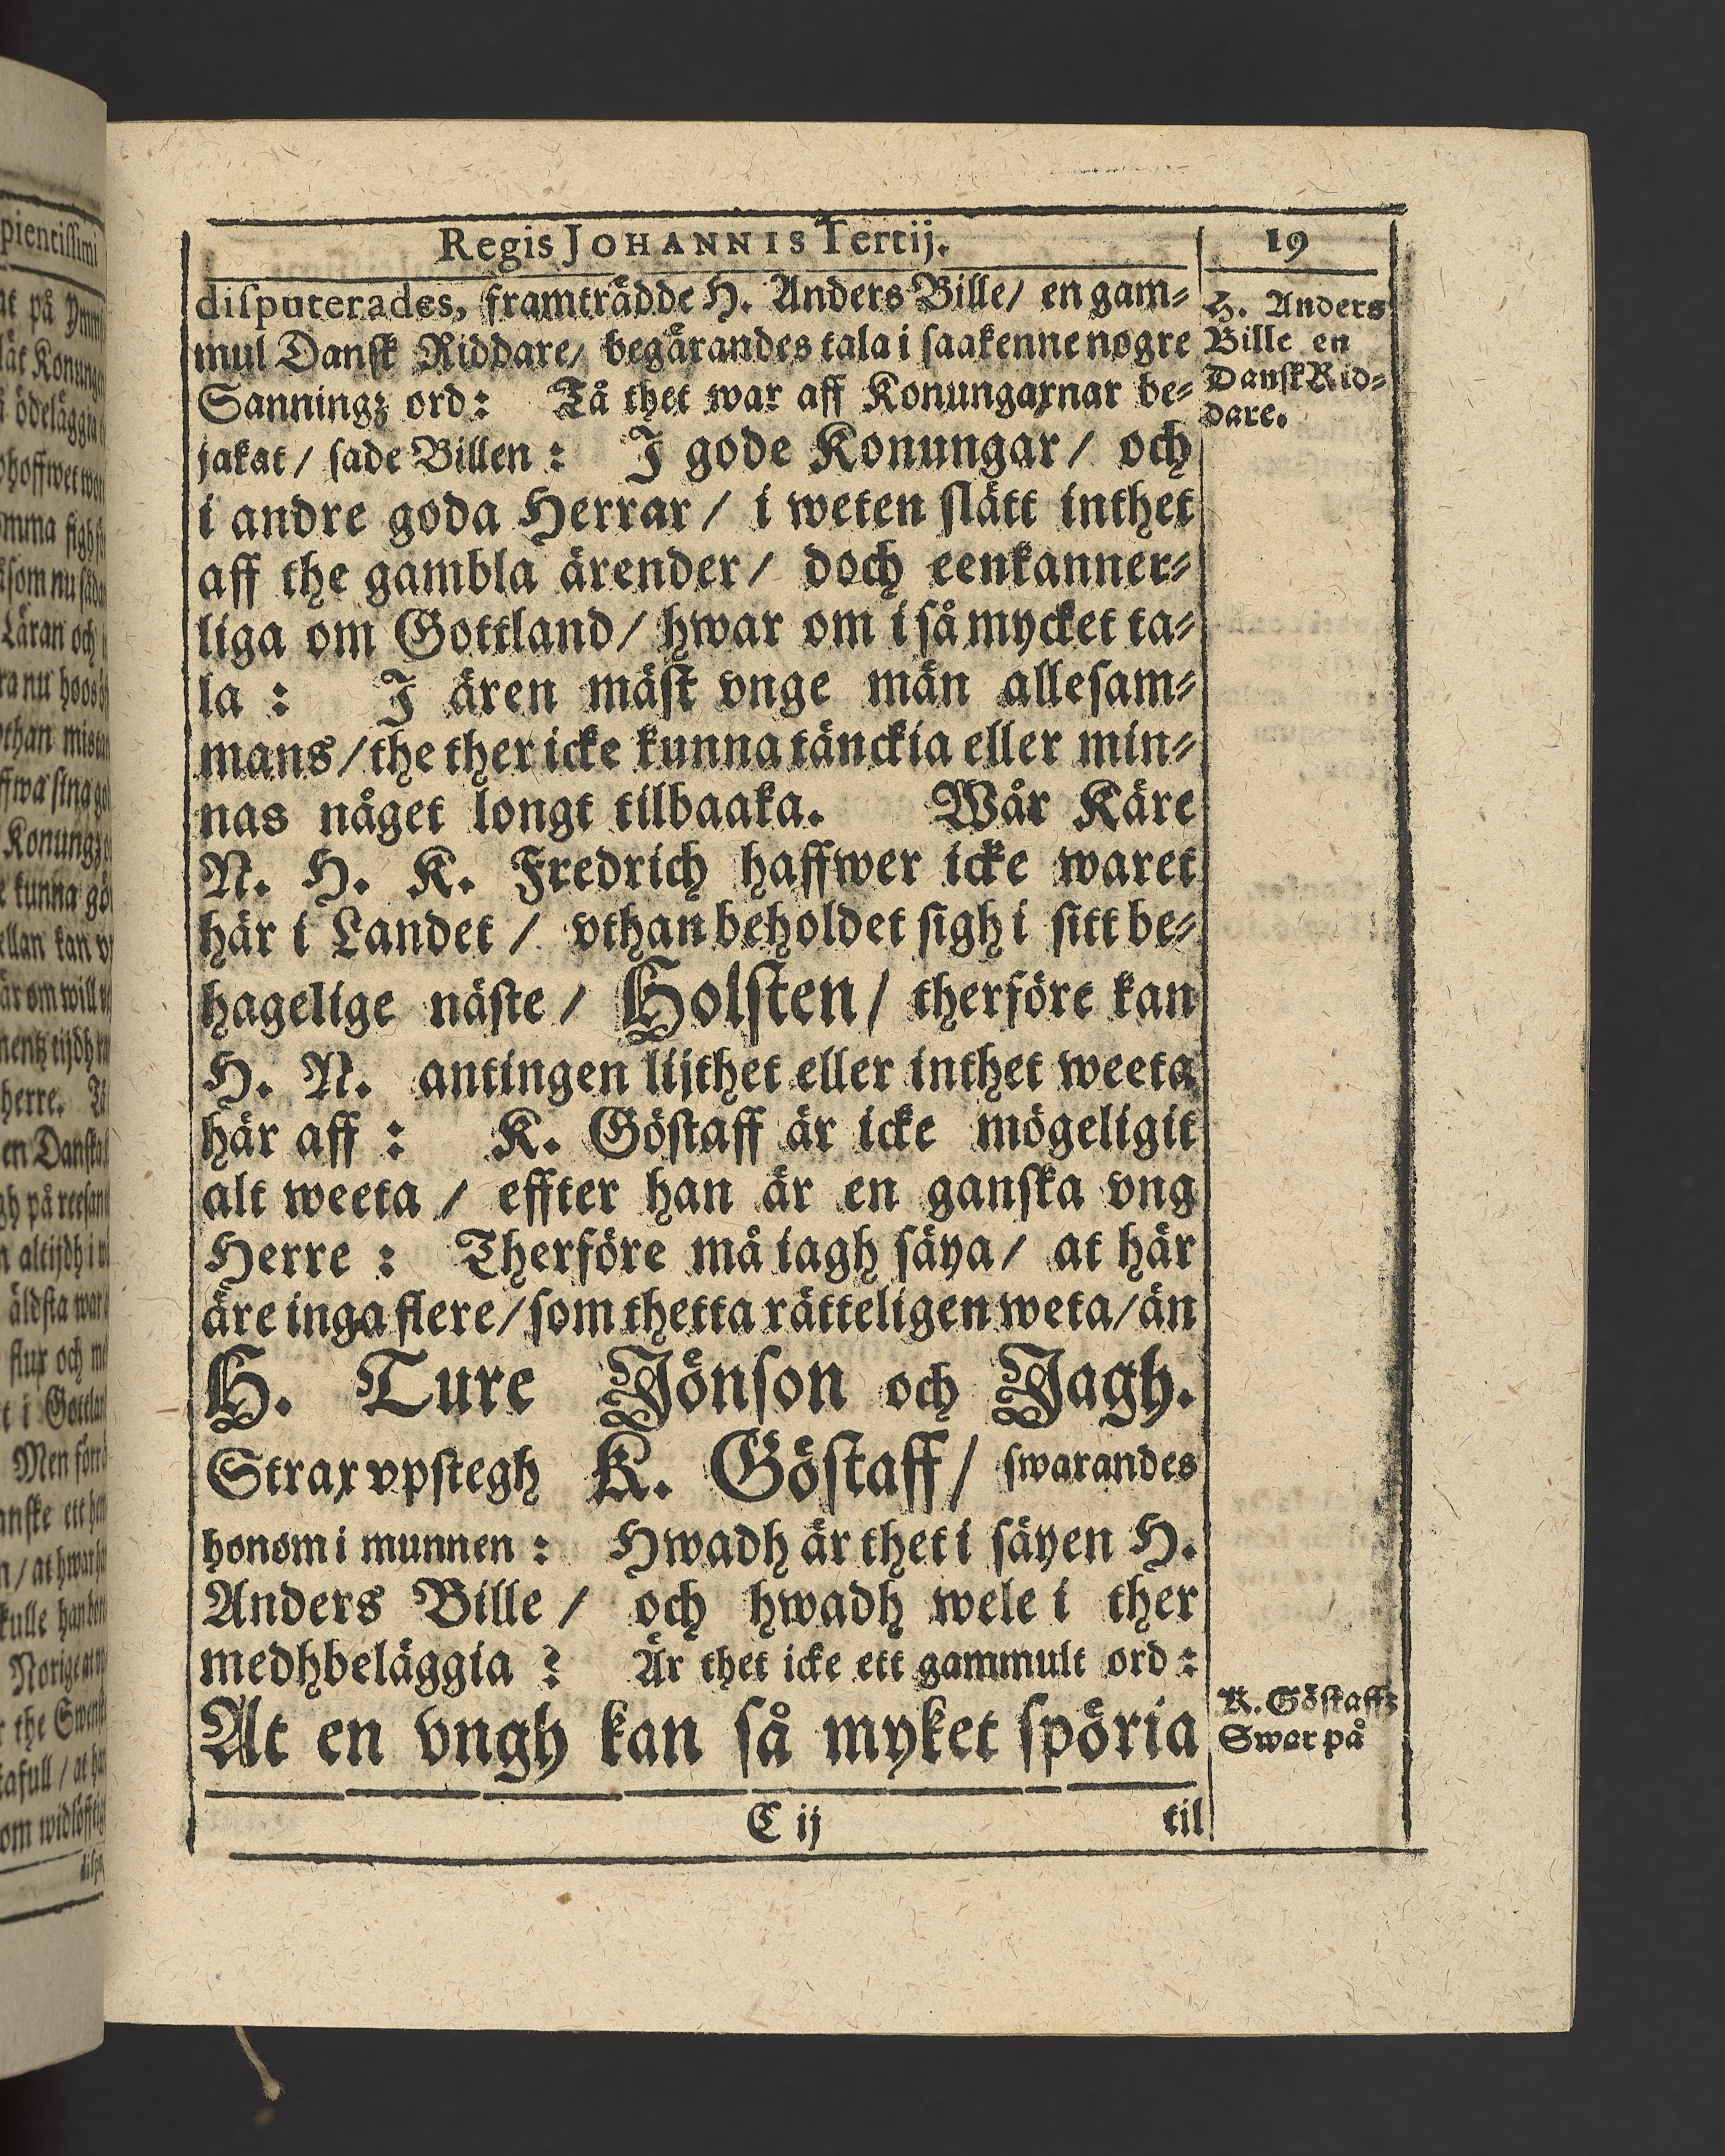 Regis JOHANNIS Tertij.
19
disputerades, framträdde H. Anders Bille/ en gam⸗
mul Dansk Riddare/ begärandes tala i saakenne nogre
Sanningz ord: Tå thet war aff Konungarnar be⸗
jakat/ sade Billen: I gode Konungar/ och
i andre goda Herrar/ i weten slätt inthet
aff the gambla ärender/ doch eenkanner⸗
liga om Gottland/ hwar om i så mycket ta⸗
la: I ären mäst vnge män allesam⸗
mans/ the ther icke kunna tänckia eller min⸗
nas någet longt tilbaaka. Wår Käre
N. H. K. Fredrich haffwer icke waret
här i Landet/ vthan beholdet sigh i sitt be⸗
hagelige näste/ Holsten/ therföre kan
H. N. antingen lijthet eller inthet weeta
här aff: K. Göstaff är icke mögeligit
alt weeta/ effter han är en ganska vng
Herre: Therföre må iagh säya/ at här
äre inga flere/ som thetta rätteligen weta/ än
H. Ture Jönson och Jagh.
Strax vpstegh K. Göstaff/ swarandes
honom i munnen: Hwadh är thet i säyen H.
Anders Bille/ och hwadh wele i ther
medhbeläggia? Är thet icke ett gammult ord:
At en vngh kan så myket spöria
C ij
til
H. Anders
Bille en
Dansk Rid⸗
dare.
K. Göstaffz
Swar på